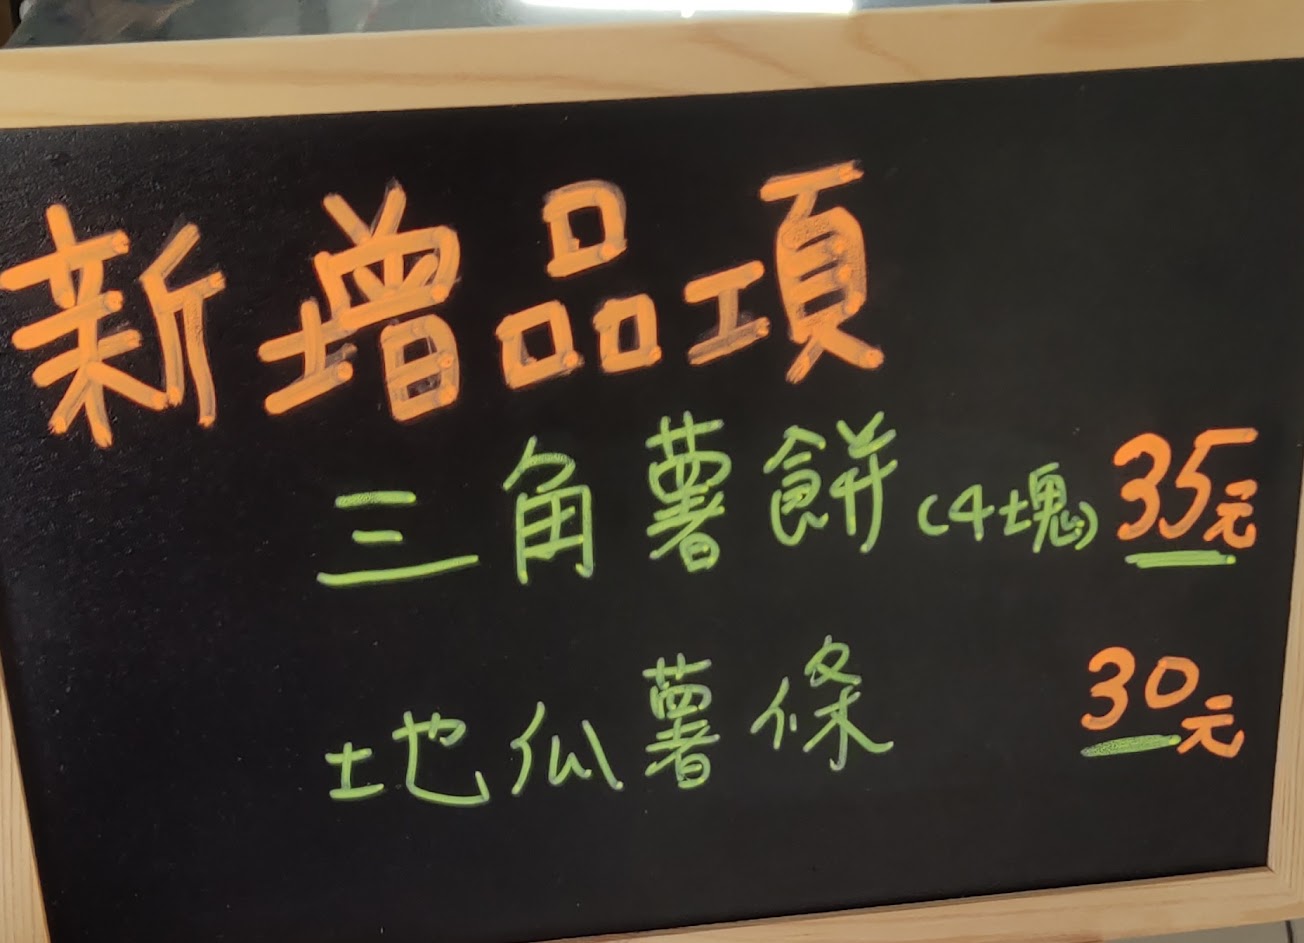 新增品項
三角薯餅(4塊) 35元
地瓜薯條 30元